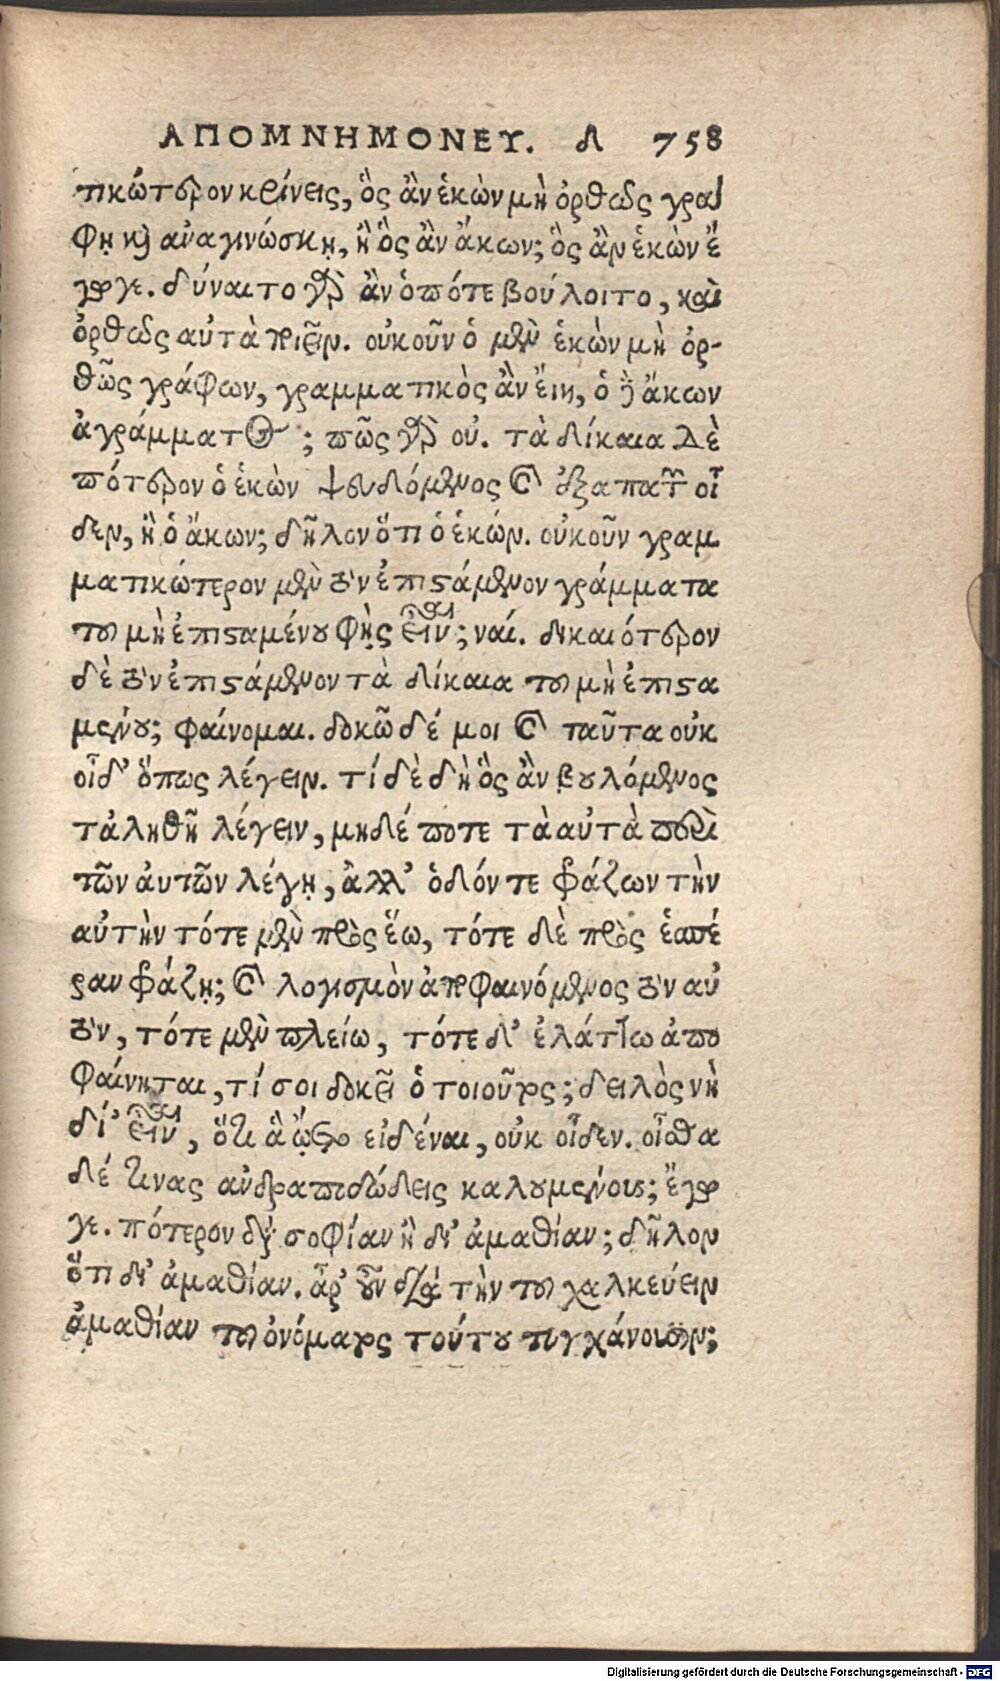 ΑΠΟΜΝΗΜΟΝΕΥ. Δ 758
τικώτερον κρίνεις, ὃς ἂν ἑκὼν μὴ ὀρθῶς γρά
φῃ καὶ ἀναγινώσκῃ, ἢ ὃς ἂν ἄκων; ὃς ἂν ἑκὼν ἔ
γωγε. δύναιτο γὰρ ἂν ὁπότε βούλοιτο, καὶ
ὀρθῶς αὐτὰ ποιεῖν. οὐκοῦν ὁ μὲν ἑκὼν μὴ ὀρ-
θῶς γράφων, γραμματικὸς ἂν εἴη, ὁ δὲ ἄκων
ἀγράμματος; πῶς γὰρ οὐ. τὰ δίκαια δὲ
πότερον ὁ ἑκὼν ψευδόμενος καὶ ἐξαπατῶν οἶ
δεν, ἢ ὁ ἄκων; δῆλον ὅτι ὁ ἑκών. οὐκοῦν γραμ
ματικώτερον μὲν τὸν ἐπιστάμενον γράμματα
τοῦ μὴ ἐπισταμένου φῂς εἶναι; ναί. δικαιότερον
δὲ τὸν ἐπιστάμενον τὰ δίκαια τοῦ μὴ ἐπιστα
μένου; φαίνομαι. δοκῶ δέ μοι καὶ ταῦτα οὐκ
οἶδ' ὅπως λέγειν. τί δὲ δὴ ὃς ἂν βουλόμενος
τἀληθῆ λέγειν, μηδέποτε τὰ αὐτὰ περὶ
τῶν αὐτῶν λέγῃ, ἀλλ' ὁδόν τε φράζων τὴν
αὐτὴν τότε μὲν πρὸς ἕω, τότε δὲ πρὸς ἑσπέ
ραν φράζῃ; καὶ λογισμὸν ἀποφαινόμενος τὸν αὐ
τὸν, τότε μὲν πλείω, τότε δ' ἐλάττω ἀπο
φαίνηται, τί σοι δοκεῖ ὁ τοιοῦτος; δειλὸς νὴ
δί' εἶναι, ὅτι ἃ ᾤετο εἰδέναι, οὐκ οἶδεν. οἶσθα
δέ τινας ἀνδραποδώδεις καλουμένους; ἔγω
γε. πότερον διὰ σοφίαν ἢ δι' ἀμαθίαν; δῆλον
ὅτι δι' ἀμαθίαν. ἆρ' οὖν διὰ τὴν τοῦ χαλκεύειν
ἀμαθίαν τοῦ ὀνόματος τούτου τυγχάνουσιν;
Digitalisierung gefördert durch die Deutsche Forschungsgemeinschaft - DFG